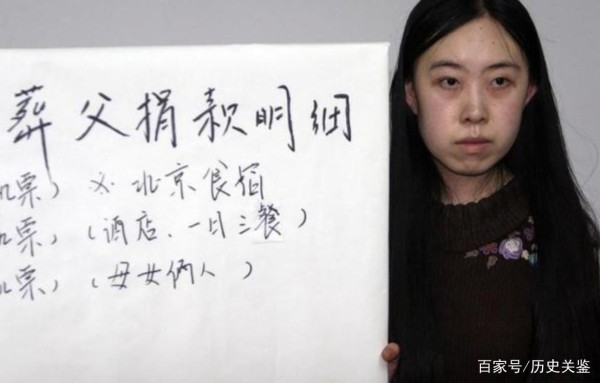 葬父捐款明细
机票）× 北京食宿
机票）（酒店、一日三餐）
机票）（母女俩人）
百家号/历史关鉴